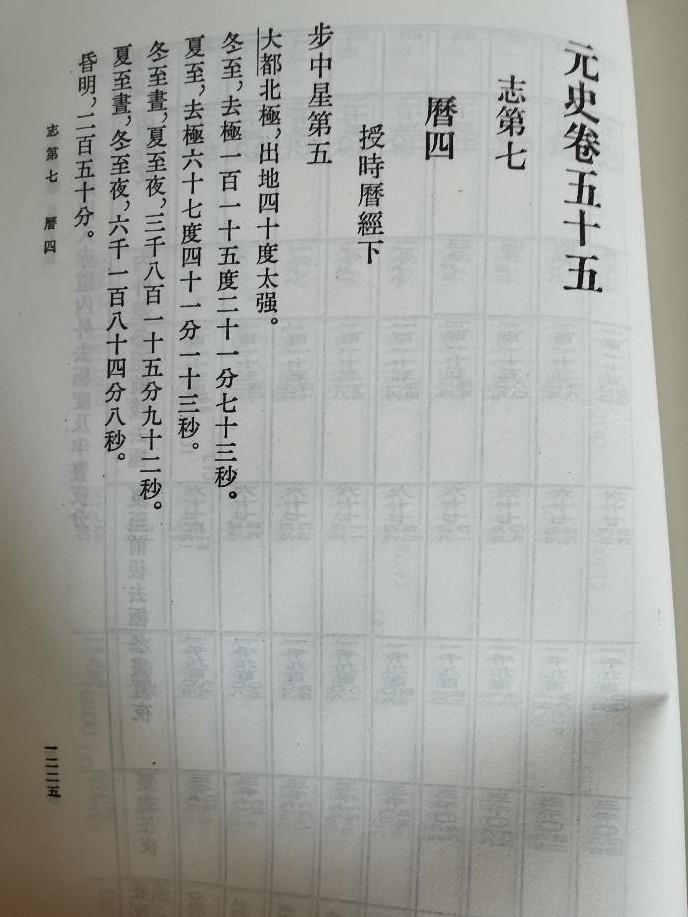 元史卷五十五
志第七
曆四
授時曆經下
步中星第五
大都北極，出地四十度太强。
冬至，去極一百一十五度二十一分七十三秒。
夏至，去極六十七度四十一分一十三秒。
冬至晝，夏至夜，三千八百一十五分九十二秒。
夏至晝，冬至夜，六千一百八十四分八秒。
昏明，二百五十分。
志第七 曆四
一二二五